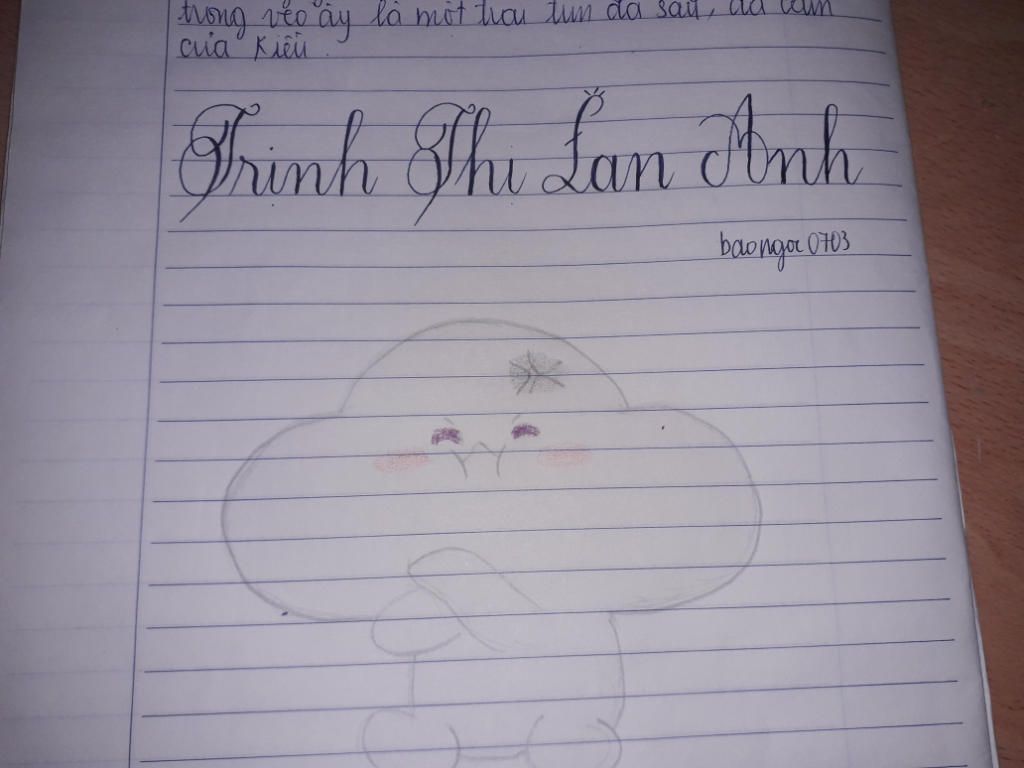 trong vẻo ấy là một trái tim đa sầu, đa cảm
của Kiều.
Trịnh Thị Lan Anh
baongoc0703